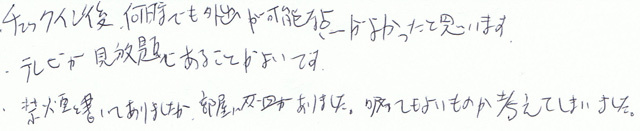 ・チェックイン後、何度でも外出が可能な点がよかったと思います。
・テレビが見放題であることがよいです。
・禁煙と書いてありましたが、部屋に灰皿がありました。吸ってもよいものか考えてしまいました。